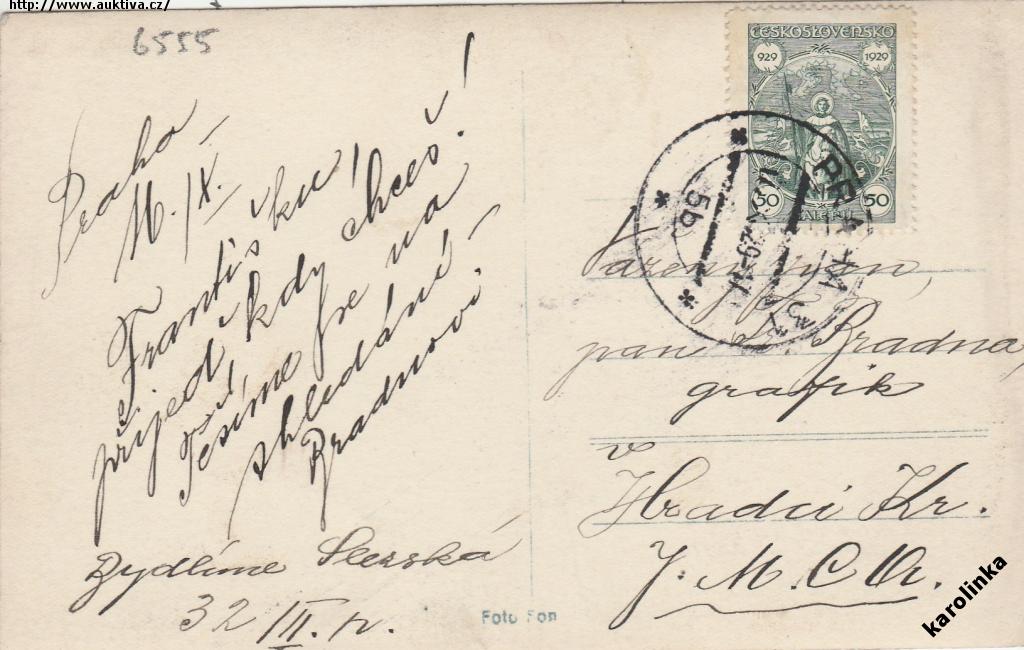 http://www.auktiva.cz/
6555
Praha
11./IX.
Františku!
přijeď, kdy chceš!
Těšíme se na
shledání –
Bradnovi.
Bydlíme Slezská
32 III. p.
ČESKOSLOVENSKO
929 1929
50 HALÉŘŮ 50
PRAHA
5b
pan
Brádna,
grafik
v
Hradci Kr.
Y. M. C. A.
Foto Fon
karolinka